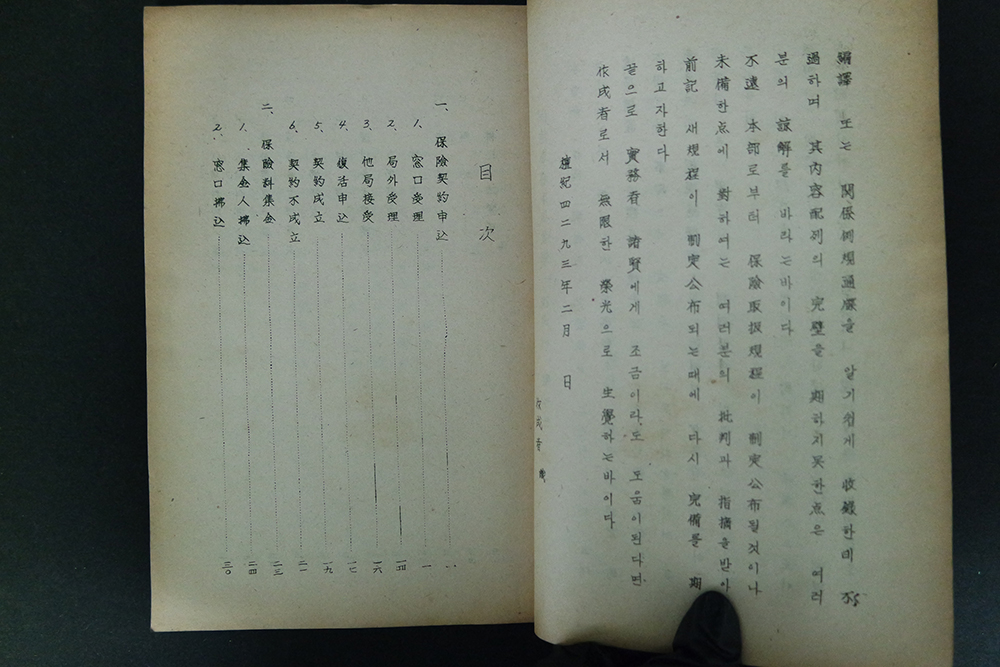 編譯 또는 關係例規通牒을 알기쉽게 收錄한데 不
過하며 其內容配列의 完璧을 期하지못한点은 여러
분의 諒解를 바라는바이다
不遠 本部로부터 保險取扱規程이 制定公布될것이나
未備한点에 對하여는 여러분의 批判과 指摘을받아
前記 새規程이 制定公布되는때에 다시 完備를 期
하고자한다
끝으로 實務者 諸賢에게 조금이라도 도움이된다면
作成者로서 無限한 榮光으로 生覺하는바이다
檀紀四二九三年二月 日
作成者 識
目次
一、保險契約申込 一
1、窓口受理 一
2、局外受理 一四
3、他局接受 一六
4、復活申込 一七
5、契約成立 一九
6、契約不成立 二一
二、保險料集金 二三
1、集金人拂込 二四
2、窓口拂込 三〇